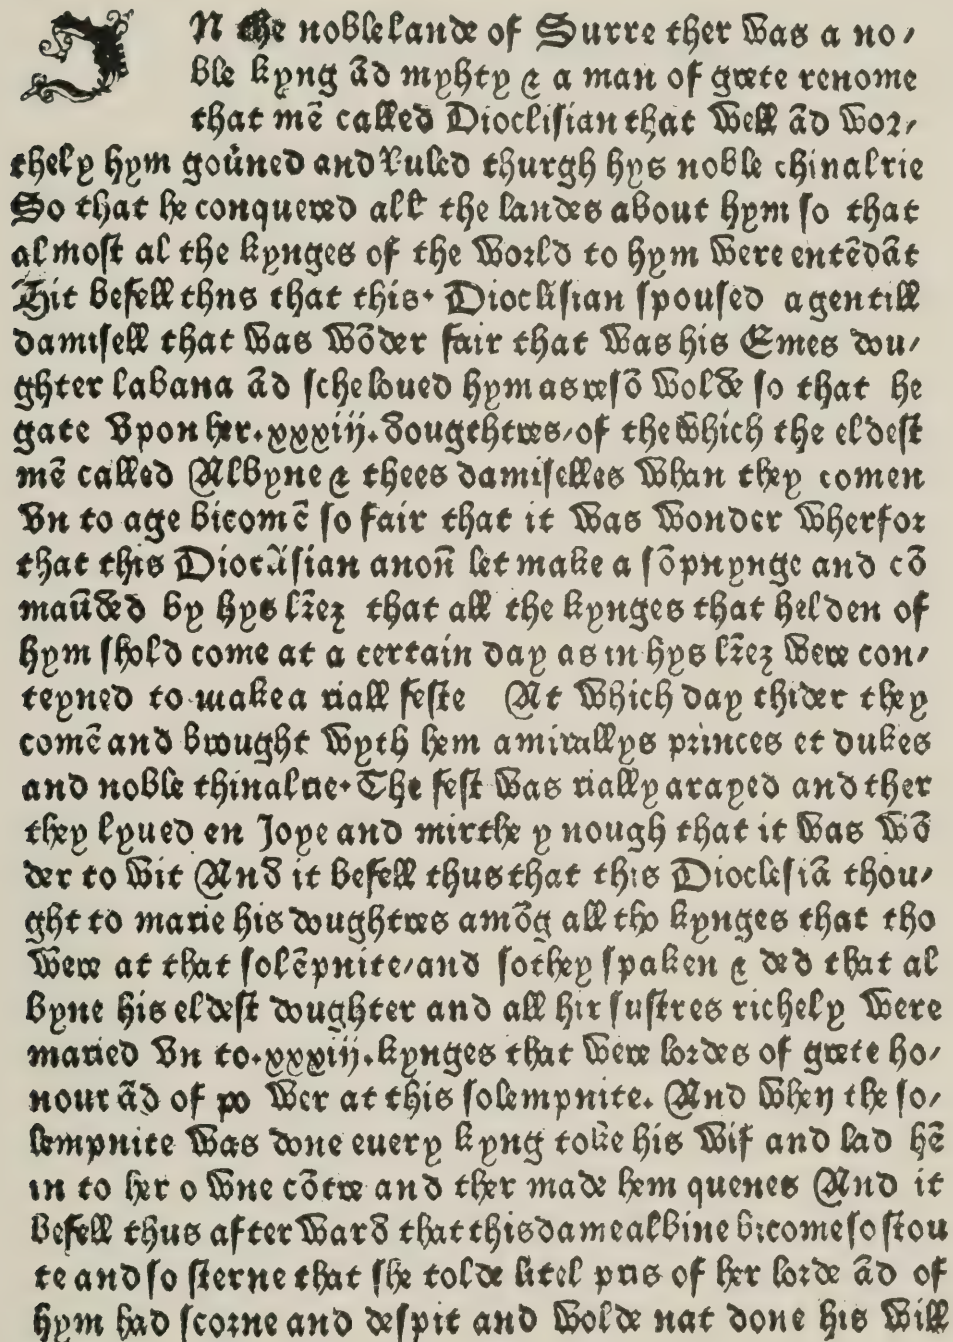 IN the noble lande of Surre ther was a no/
ble kyng ād myghty & a man of grete renome
that mē called Dioclisian that well ād wor/
thely hym goũned and ruled thurgh hys noble chiualrie
So that he conquered all the landes about hym so that
almost al the kynges of the world to hym were entēdāt
Hit befell thus that this. Dioclisian spoused a gentill
damisell that was wōder fair that was his Emes dou/
ghter labana ād sche loued hym as resō wolde so that he
gate vpon her.xxxiij. dougthtres/of the which the eldest
mē called Albyne & thees damiselles whan they comen
vn to age bicomē so fair that it was wonder wherfor
that this Dioclisian anon̄ let make a sōpnynge and cō
maūded by hys lr̄ez that all the kynges that helden of
hym shold come at a certain day as in hys lr̄ez were con/
teyned to make a riall feste At which day thider they
comē and brought wyth hem amirallys princes et dukes
and noble chiualrie. The fest was rially arayed and ther
they lyued en Joye and mirthe y nough that it was wō
der to wit And it befell thus that this Dioclesiā thou/
ght to marie his doughtres amōg all tho kynges that tho
were at that solēpnite/and so they spaken & ded that al
byne his eldest doughter and all hir sustres richely were
maried vn to.xxxiij.kynges that were lordes of grete ho/
nour ād of po wer at this solempnite. And when the so/
lempnite was done euery kyng toke his wif and lad hē
in to her o wne cōtre and ther made hem quenes And it
befell thus after ward that this dame albine bicome so stou
te and so sterne that she tolde litel pris of her lorde ād of
hym had scorne and despit and wolde nat done his will